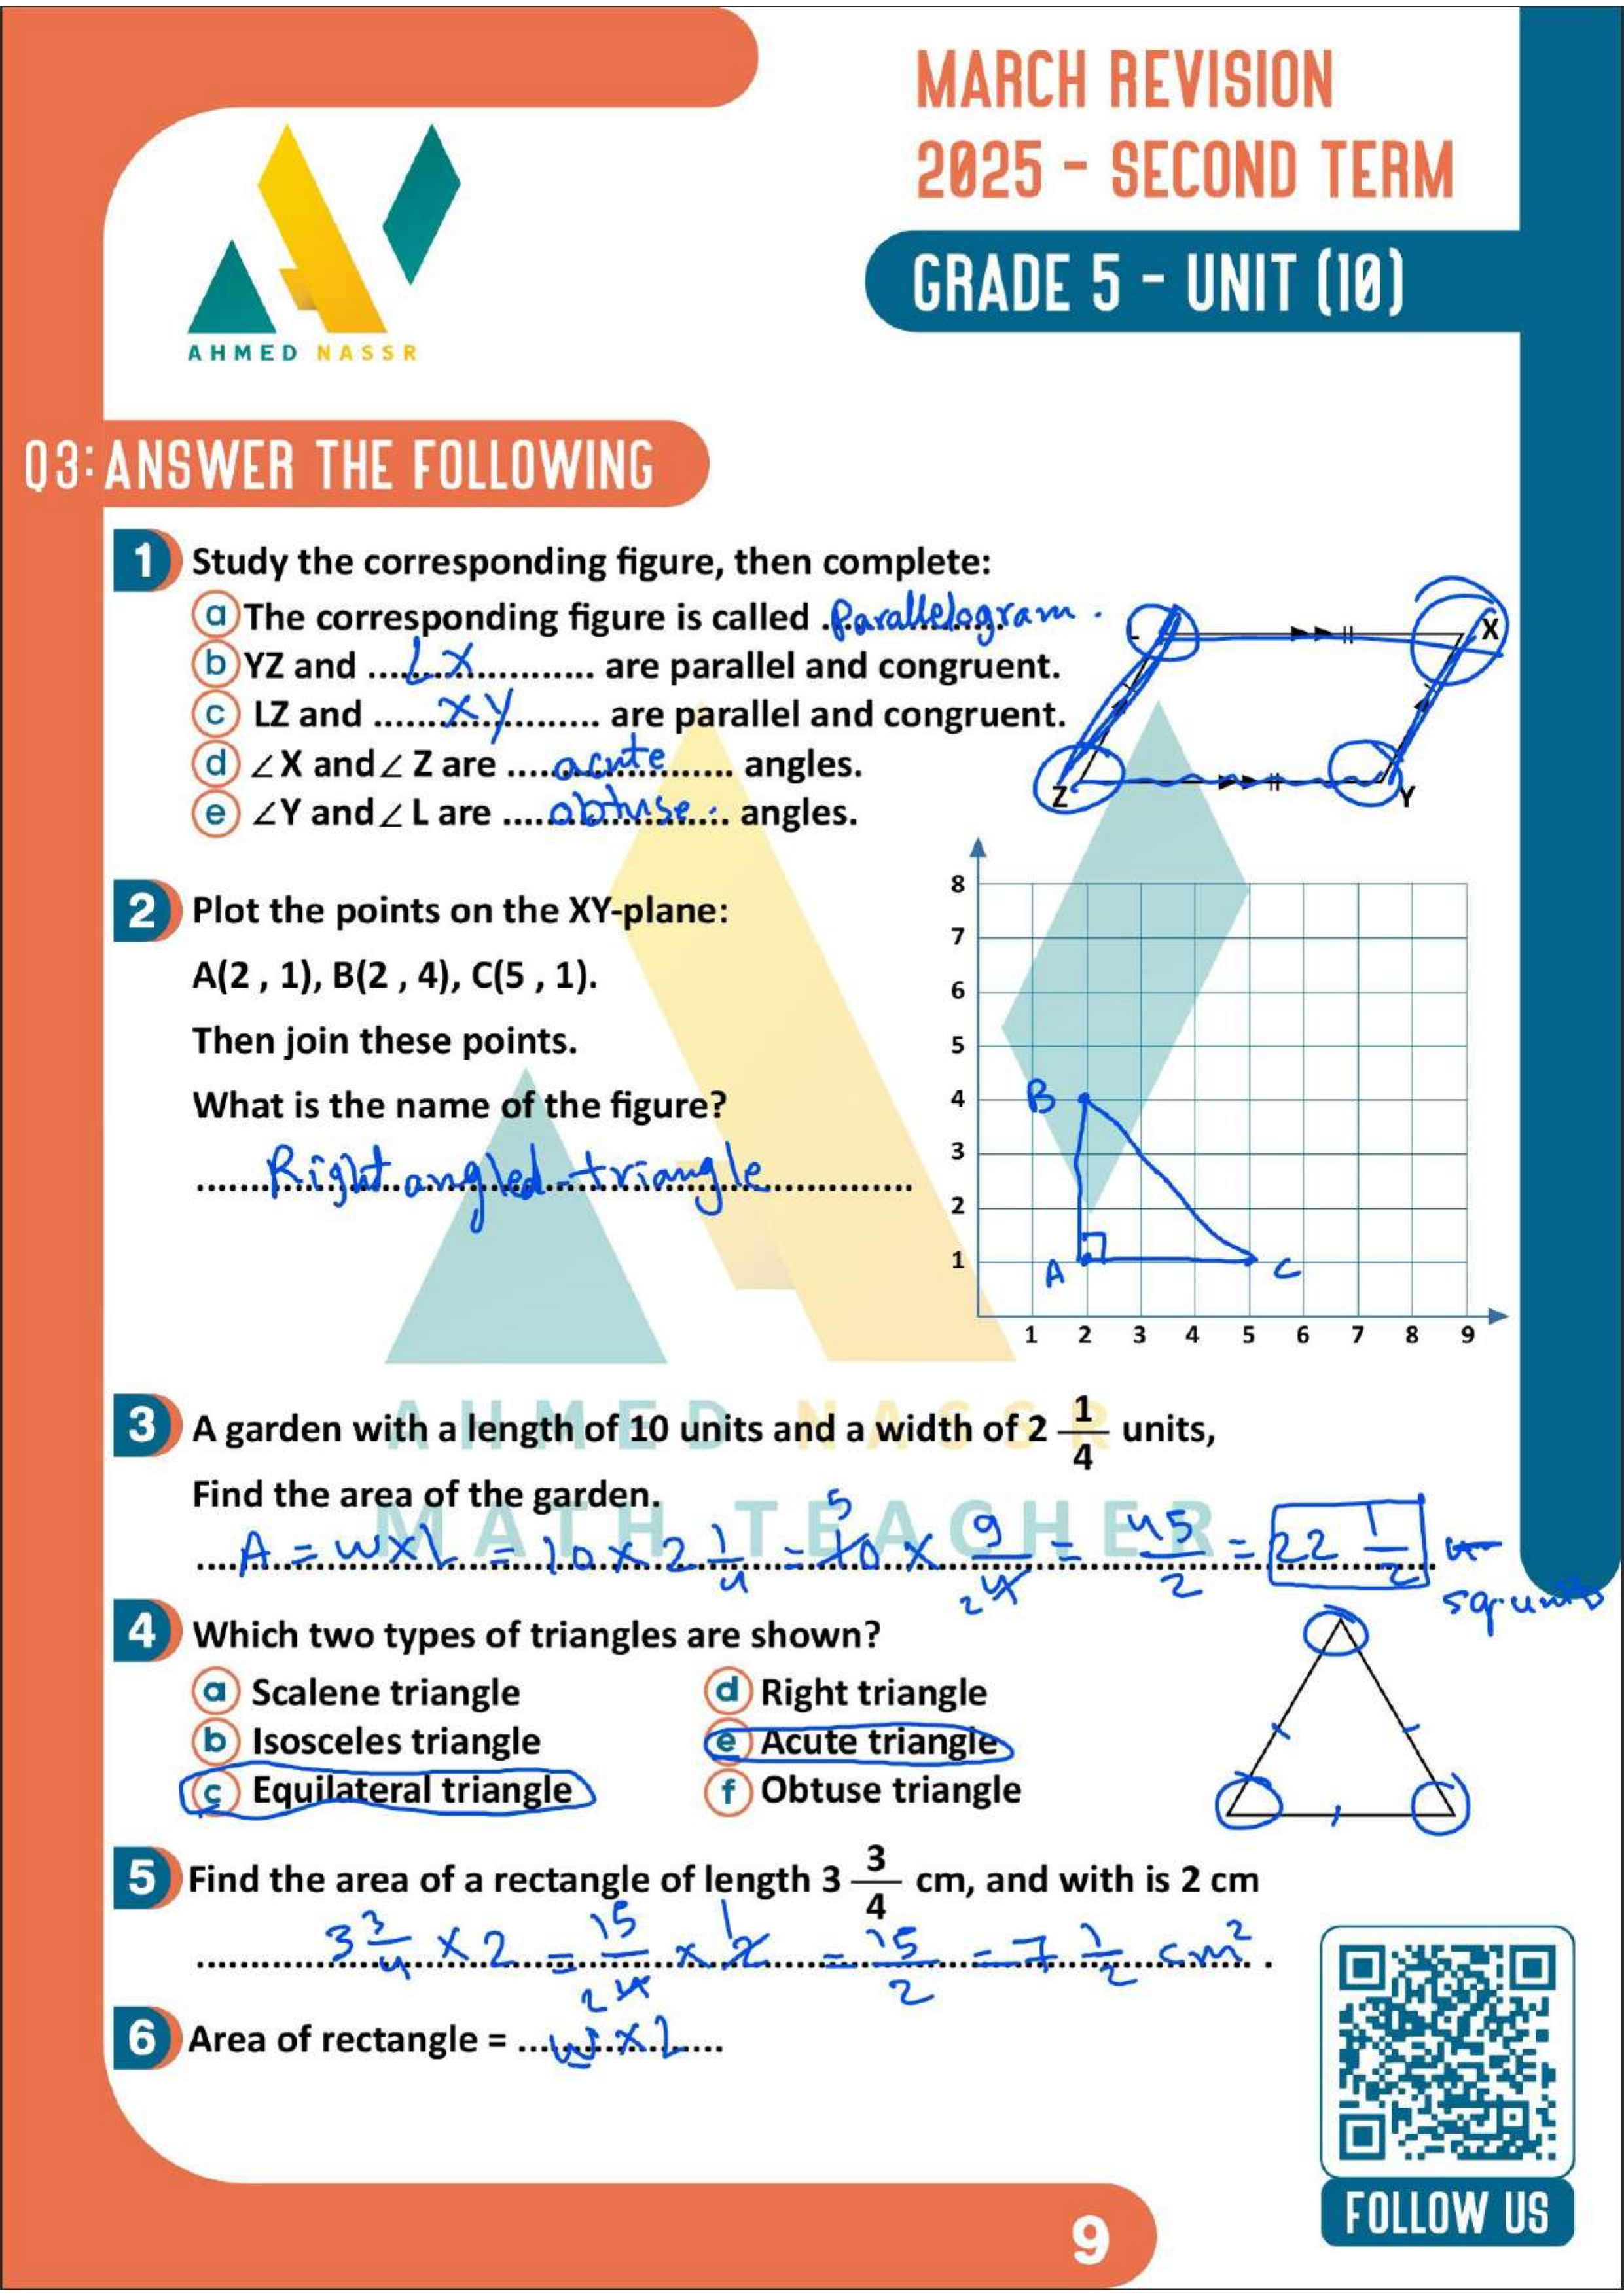 MARCH REVISION
2025 - SECOND TERM
GRADE 5 - UNIT (10)
AHMED NASSR
Q3: ANSWER THE FOLLOWING
1 Study the corresponding figure, then complete:
a The corresponding figure is called .Parallelogram.
b YZ and ....LX.... are parallel and congruent.
c LZ and ....XY.... are parallel and congruent.
d ∠X and ∠Z are ....acute.... angles.
e ∠Y and ∠L are ....obtuse.... angles.
L X
Z Y
2 Plot the points on the XY-plane:
A(2 , 1), B(2 , 4), C(5 , 1).
Then join these points.
What is the name of the figure?
....Right angled triangle....
8
7
6
5
4 B
3
2
1 A C
1 2 3 4 5 6 7 8 9
AHMED NASSR
MATH TEACHER
3 A garden with a length of 10 units and a width of 2 1/4 units,
Find the area of the garden.
A = w×L = 10 × 2 1/4 = 10 5 × 9/4 2 = 45/2 = 22 1/2
sq. units
4 Which two types of triangles are shown?
a Scalene triangle d Right triangle
b Isosceles triangle e Acute triangle
c Equilateral triangle f Obtuse triangle
5 Find the area of a rectangle of length 3 3/4 cm, and with is 2 cm
3 3/4 × 2 = 15/4 2 × 2 1 = 15/2 = 7 1/2 cm².
6 Area of rectangle = ....w×L....
FOLLOW US
9